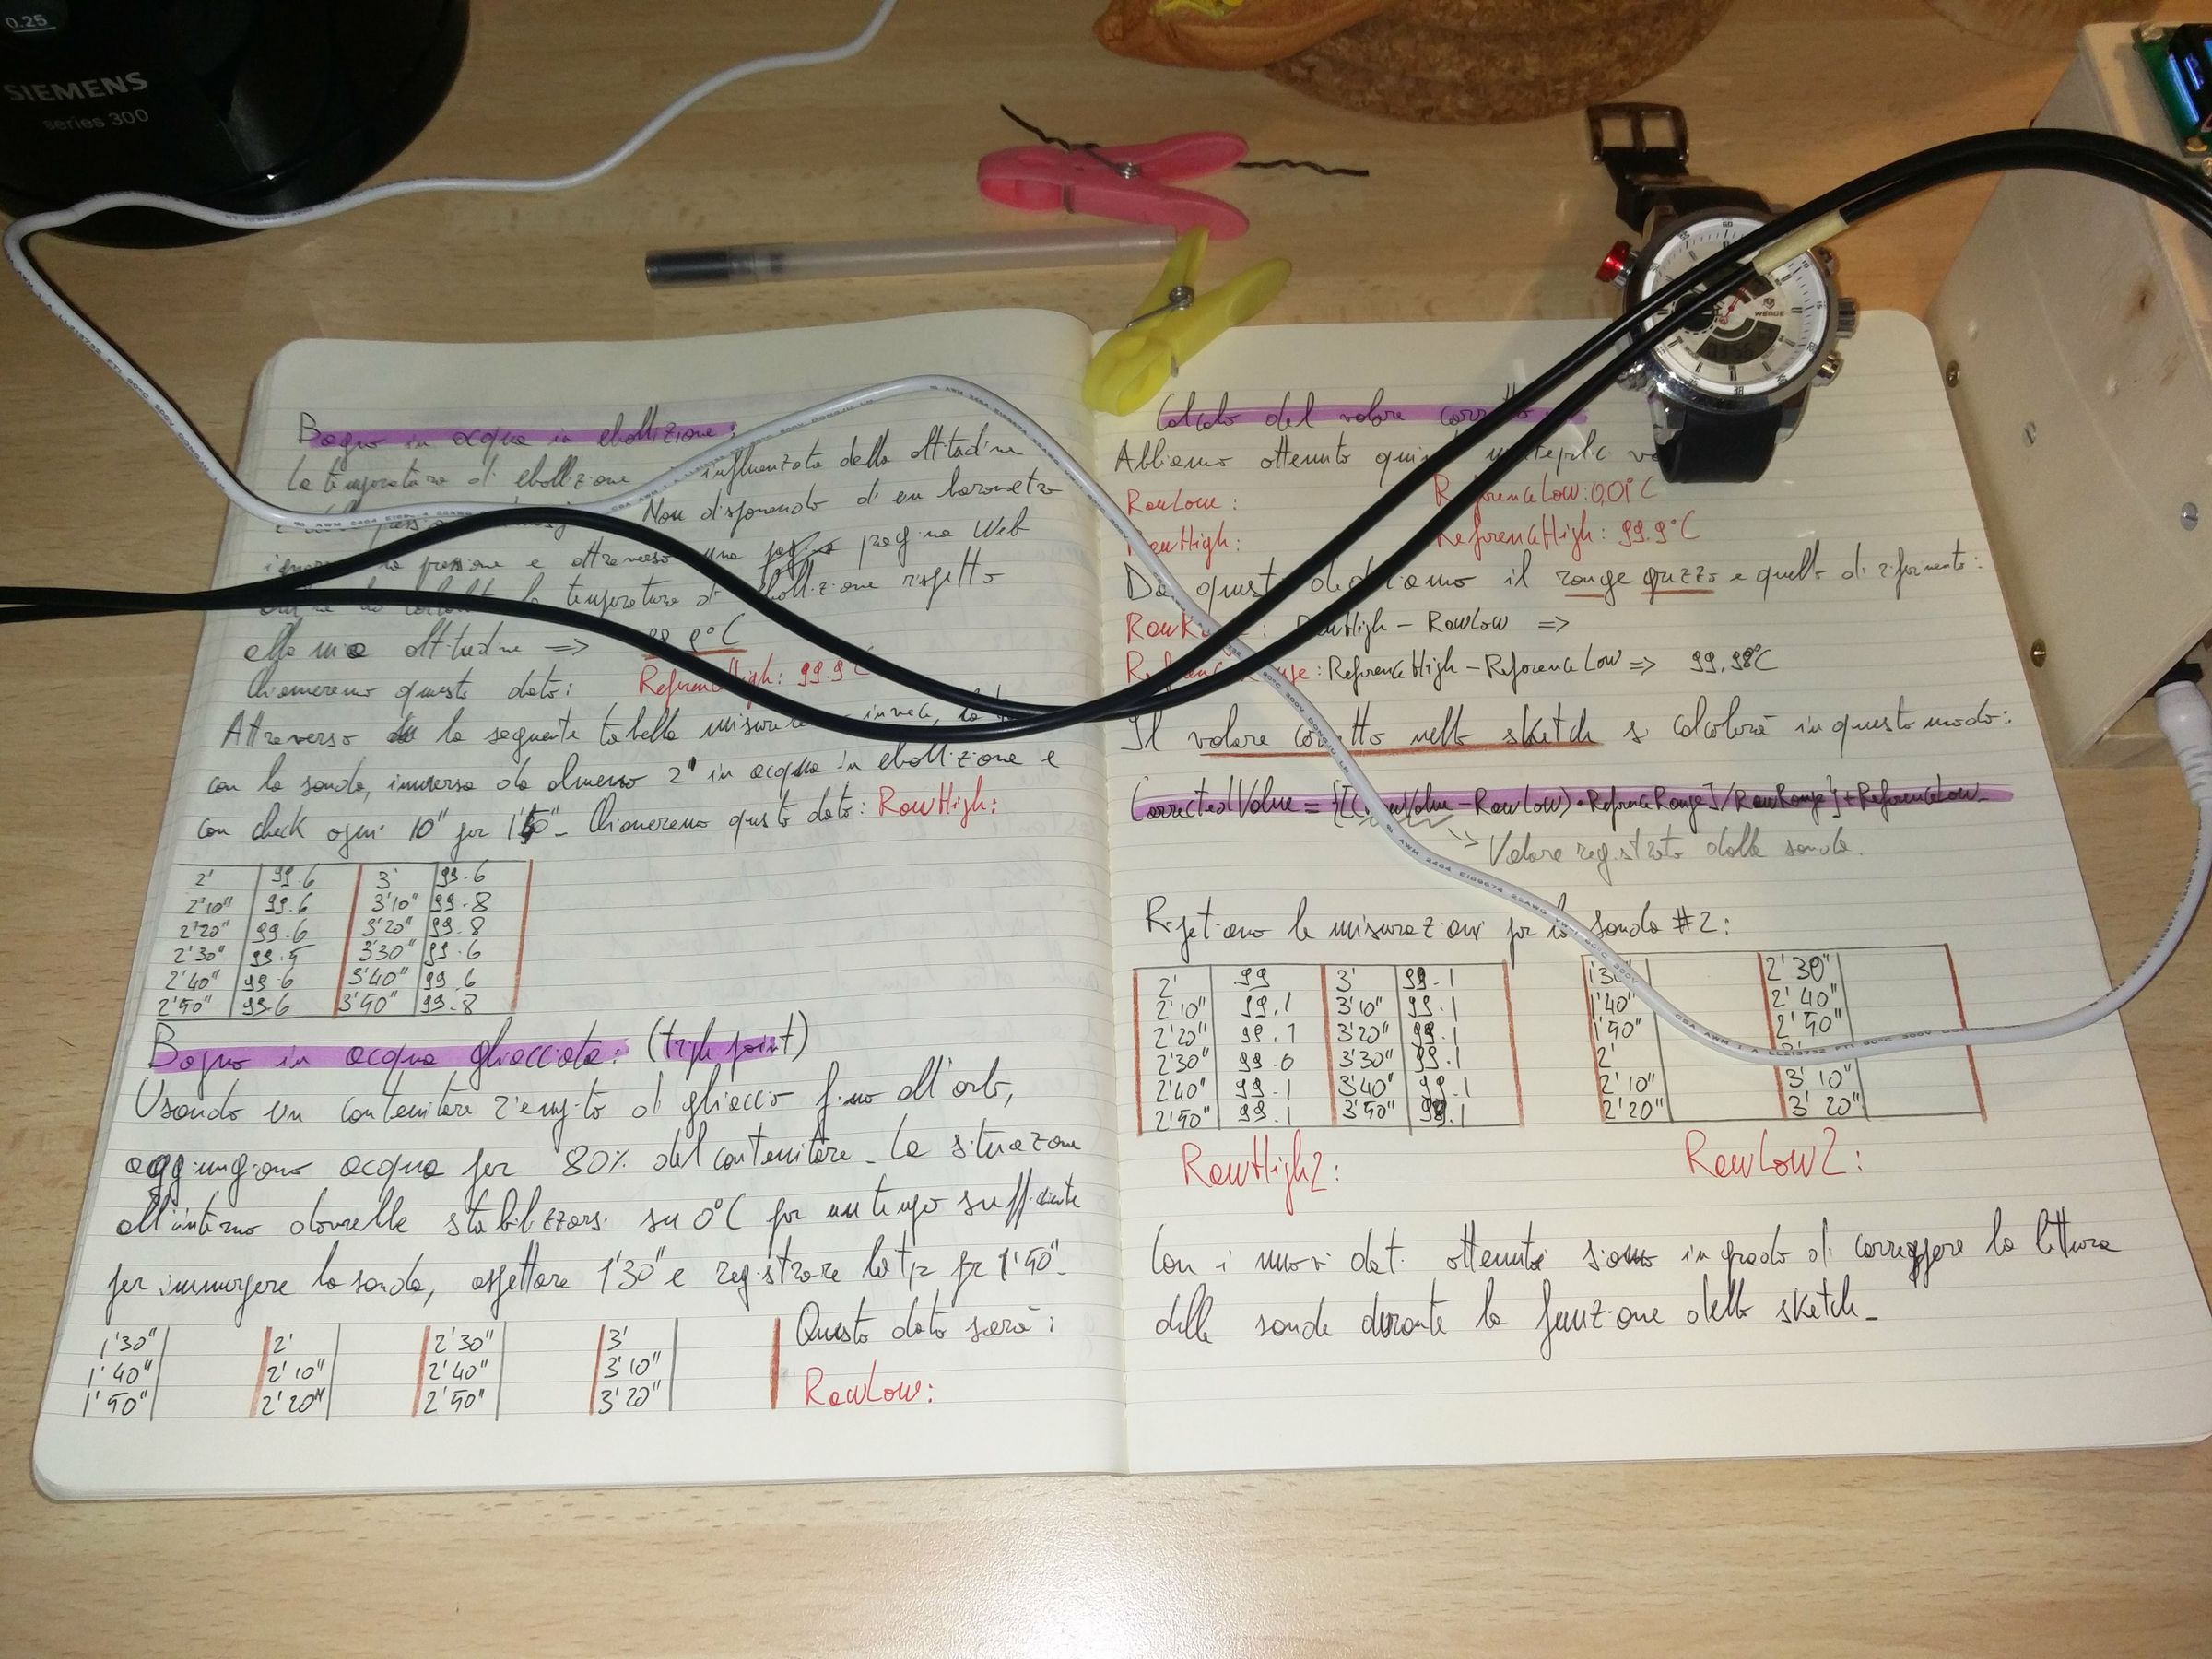 0.25
SIEMENS
series 300
WEIDE
Bagno in acqua in ebollizione:
La temperatura di ebollizione influenzata dalla altitudine
Non disponendo di un barometro
pressione e attraverso una pagina Web
la temperatura di ebollizione rispetto
alla mia altitudine =>
Chiameremo questo dato: ReferenceHigh: 99.9°C
Attraverso la seguente tabella invece, la
con la sonda, immersa da almeno 2' in acqua in ebollizione e
con check ogni 10" per 1'50". Chiameremo questo dato: RawHigh:
2' 99.6 3' 99.6
2'10" 99.6 3'10" 99.8
2'20" 99.6 3'20" 99.8
2'30" 99.5 3'30" 99.6
2'40" 99.6 3'40" 99.6
2'50" 99.6 3'50" 99.8
Bagno in acqua ghiacciata: (triple point)
Usando un contenitore riempito di ghiaccio fino all'orlo,
aggiungiamo acqua per 80% del contenitore. La situazione
all'interno dovrebbe stabilizzarsi su 0°C per un tempo sufficiente
per immergere la sonda, aspettare 1'30" e registrare la per 1'50".
1'30" 2' 2'30" 3' Questo dato sarà:
1'40" 2'10" 2'40" 3'10"
1'50" 2'20" 2'50" 3'20" RawLow:
Calcolo del valore corretto
Abbiamo ottenuto
RawLow: ReferenceLow: 0,01°C
RawHigh: ReferenceHigh: 99.9°C
Da questi deduciamo il range grezzo e quello di riferimento:
RawHigh - RawLow =>
ReferenceHigh - ReferenceLow => 99.98°C
Il valore corretto nello sketch si calcolerà in questo modo:
CorrectedValue = {[(RawValue - RawLow) * ReferenceRange] / RawRange} + ReferenceLow
Valore registrato dalla sonda.
Ripetiamo le misurazioni per la sonda #2:
2' 99 3' 99.1 1'30" 2'30"
2'10" 99.1 3'10" 99.1 1'40" 2'40"
2'20" 99.1 3'20" 99.1 1'50" 2'50"
2'30" 99.0 3'30" 99.1 2'
2'40" 99.1 3'40" 99.1 2'10" 3'10"
2'50" 99.1 3'50" 99.1 2'20" 3'20"
RawHigh2: RawLow2:
Con i nuovi dati ottenuti siamo in grado di correggere la lettura
delle sonde durante la funzione dello sketch.